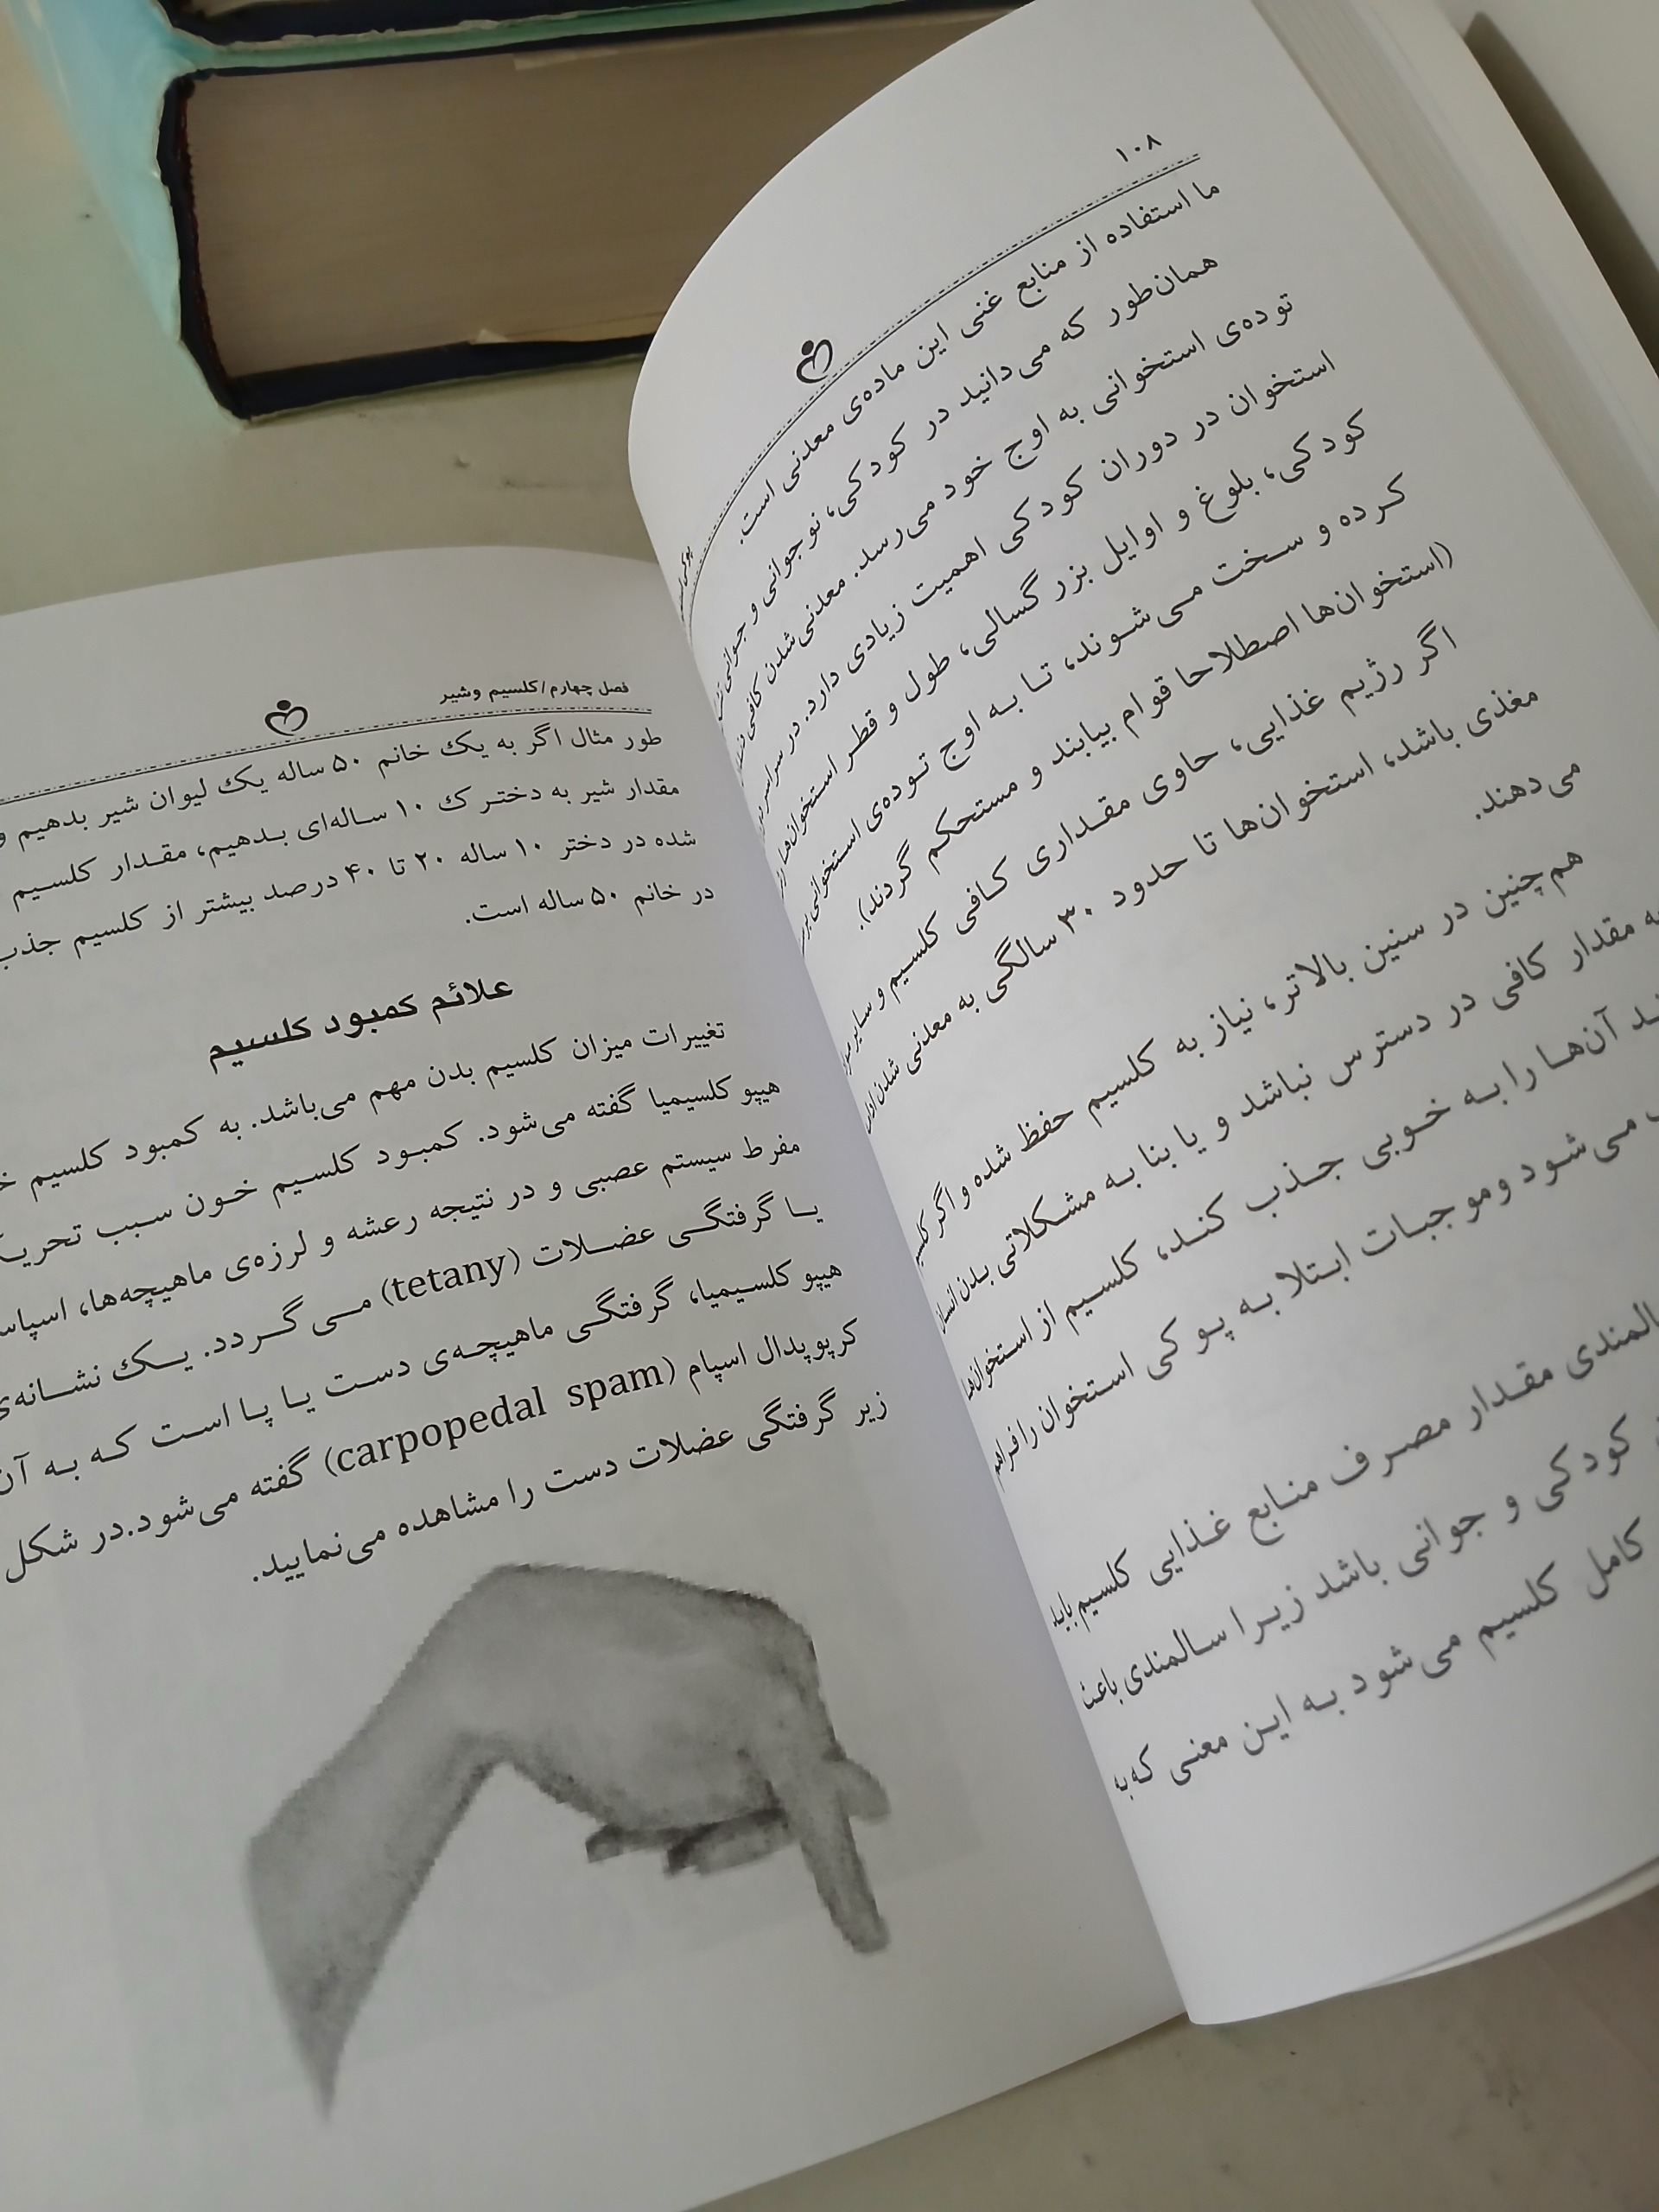 ۱۰۸
ما استفاده از منابع غنی این ماده‌ی معدنی است.
همان‌طور که می‌دانید در کودکی، نوجوانی و جوانی
توده‌ی استخوانی به اوج خود می‌رسد. معدنی‌شدن کافی
استخوان در دوران کودکی اهمیت زیادی دارد. در سراسر
کودکی، بلوغ و اوایل بزرگسالی، طول و قطر استخوان‌ها
کرده و سخت می‌شوند، تا به اوج توده‌ی استخوانی
(استخوان‌ها اصطلاحا قوام بیابند و مستحکم گردند).
اگر رژیم غذایی، حاوی مقداری کافی کلسیم و سایر
مغذی باشد، استخوان‌ها تا حدود ۳۰ سالگی به معدنی شدن
می‌دهند.
هم‌چنین در سنین بالاتر، نیاز به کلسیم حفظ شده و اگر
مقدار کافی در دسترس نباشد و یا بنا به مشکلاتی بدن
آن‌ها را به خوبی جذب کند، کلسیم از استخوان‌ها
می‌شود وموجبات ابتلا به پوکی استخوان را فراهم
مقدار مصرف منابع غذایی کلسیم باید
کودکی و جوانی باشد زیرا سالمندی باعث
کامل کلسیم می‌شود به این معنی که به
فصل چهارم/کلسیم وشیر
طور مثال اگر به یک خانم ۵۰ ساله یک لیوان شیر بدهیم و
مقدار شیر به دخترک ۱۰ ساله‌ای بدهیم، مقدار کلسیم
شده در دختر ۱۰ ساله ۲۰ تا ۴۰ درصد بیشتر از کلسیم جذب
در خانم ۵۰ ساله است.
علائم کمبود کلسیم
تغییرات میزان کلسیم بدن مهم می‌باشد. به کمبود کلسیم
هیپو کلسیمیا گفته می‌شود. کمبود کلسیم خون سبب تحریک
مفرط سیستم عصبی و در نتیجه رعشه و لرزه‌ی ماهیچه‌ها،
یا گرفتگی عضلات (tetany) می‌گردد. یک نشانه‌ی
هیپو کلسیمیا، گرفتگی ماهیچه‌ی دست یا پا است که به آن
کرپوپدال اسپام (carpopedal spam) گفته می‌شود.در شکل
زیر گرفتگی عضلات دست را مشاهده می‌نمایید.